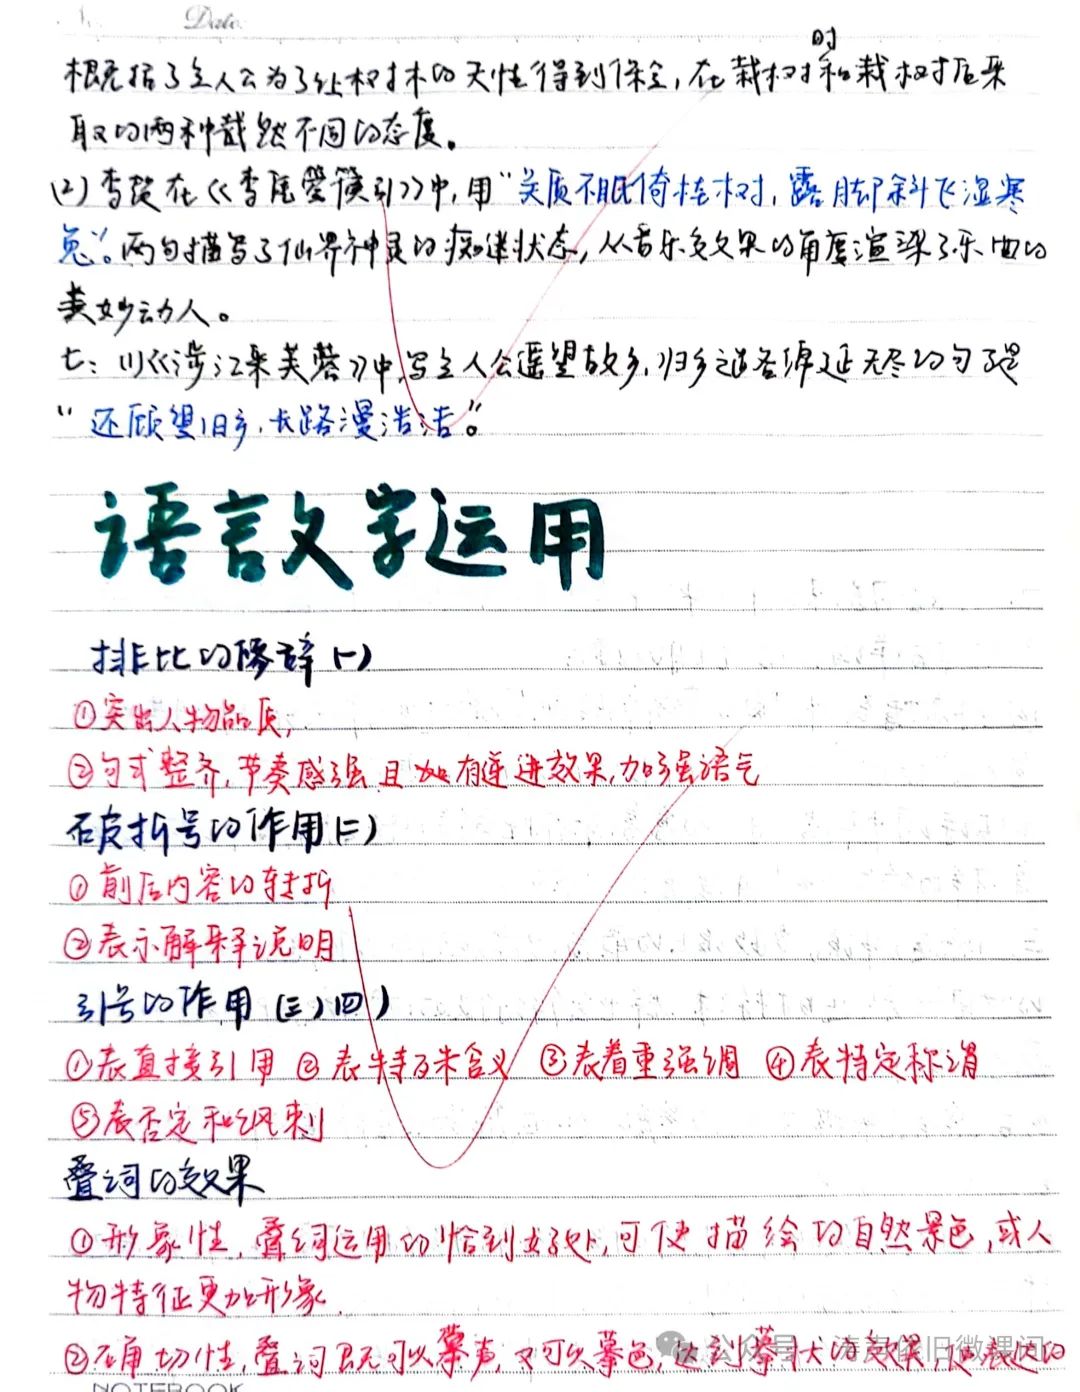 Date
时
概括了主人公为了让树木的天性得到保全,在栽树和栽树后采
取的两种截然不同的态度。
(2)李贺在《李凭箜篌引》中,用“吴质不眠倚桂树,露脚斜飞湿寒
兔”。两句描写了仙界神灵的痴迷状态,从音乐效果的角度渲染了乐曲的
美妙动人。
七:(1)《涉江采芙蓉》中,写主人公遥望故乡,归乡道路绵延无尽的句子是
“还顾望旧乡,长路漫浩浩”。
语言文字运用
排比的修辞(一)
①突出人物品质,
②句式整齐,节奏感强且有递进效果,加强语气
破折号的作用(二)
①前后内容的转折
②表示解释说明
引号的作用(三)(四)
①表直接引用 ②表特殊含义 ③表着重强调 ④表特定称谓
⑤表否定和讽刺
叠词的效果
①形象性,叠词运用的恰到好处,可使描绘的自然景色,或人
物特征更加形象.
②准确切性,叠词既可以摹声,又可以摹色,达到摹状的效果,使表达的
公众号·涛声依旧微课间
NOTEBOOK